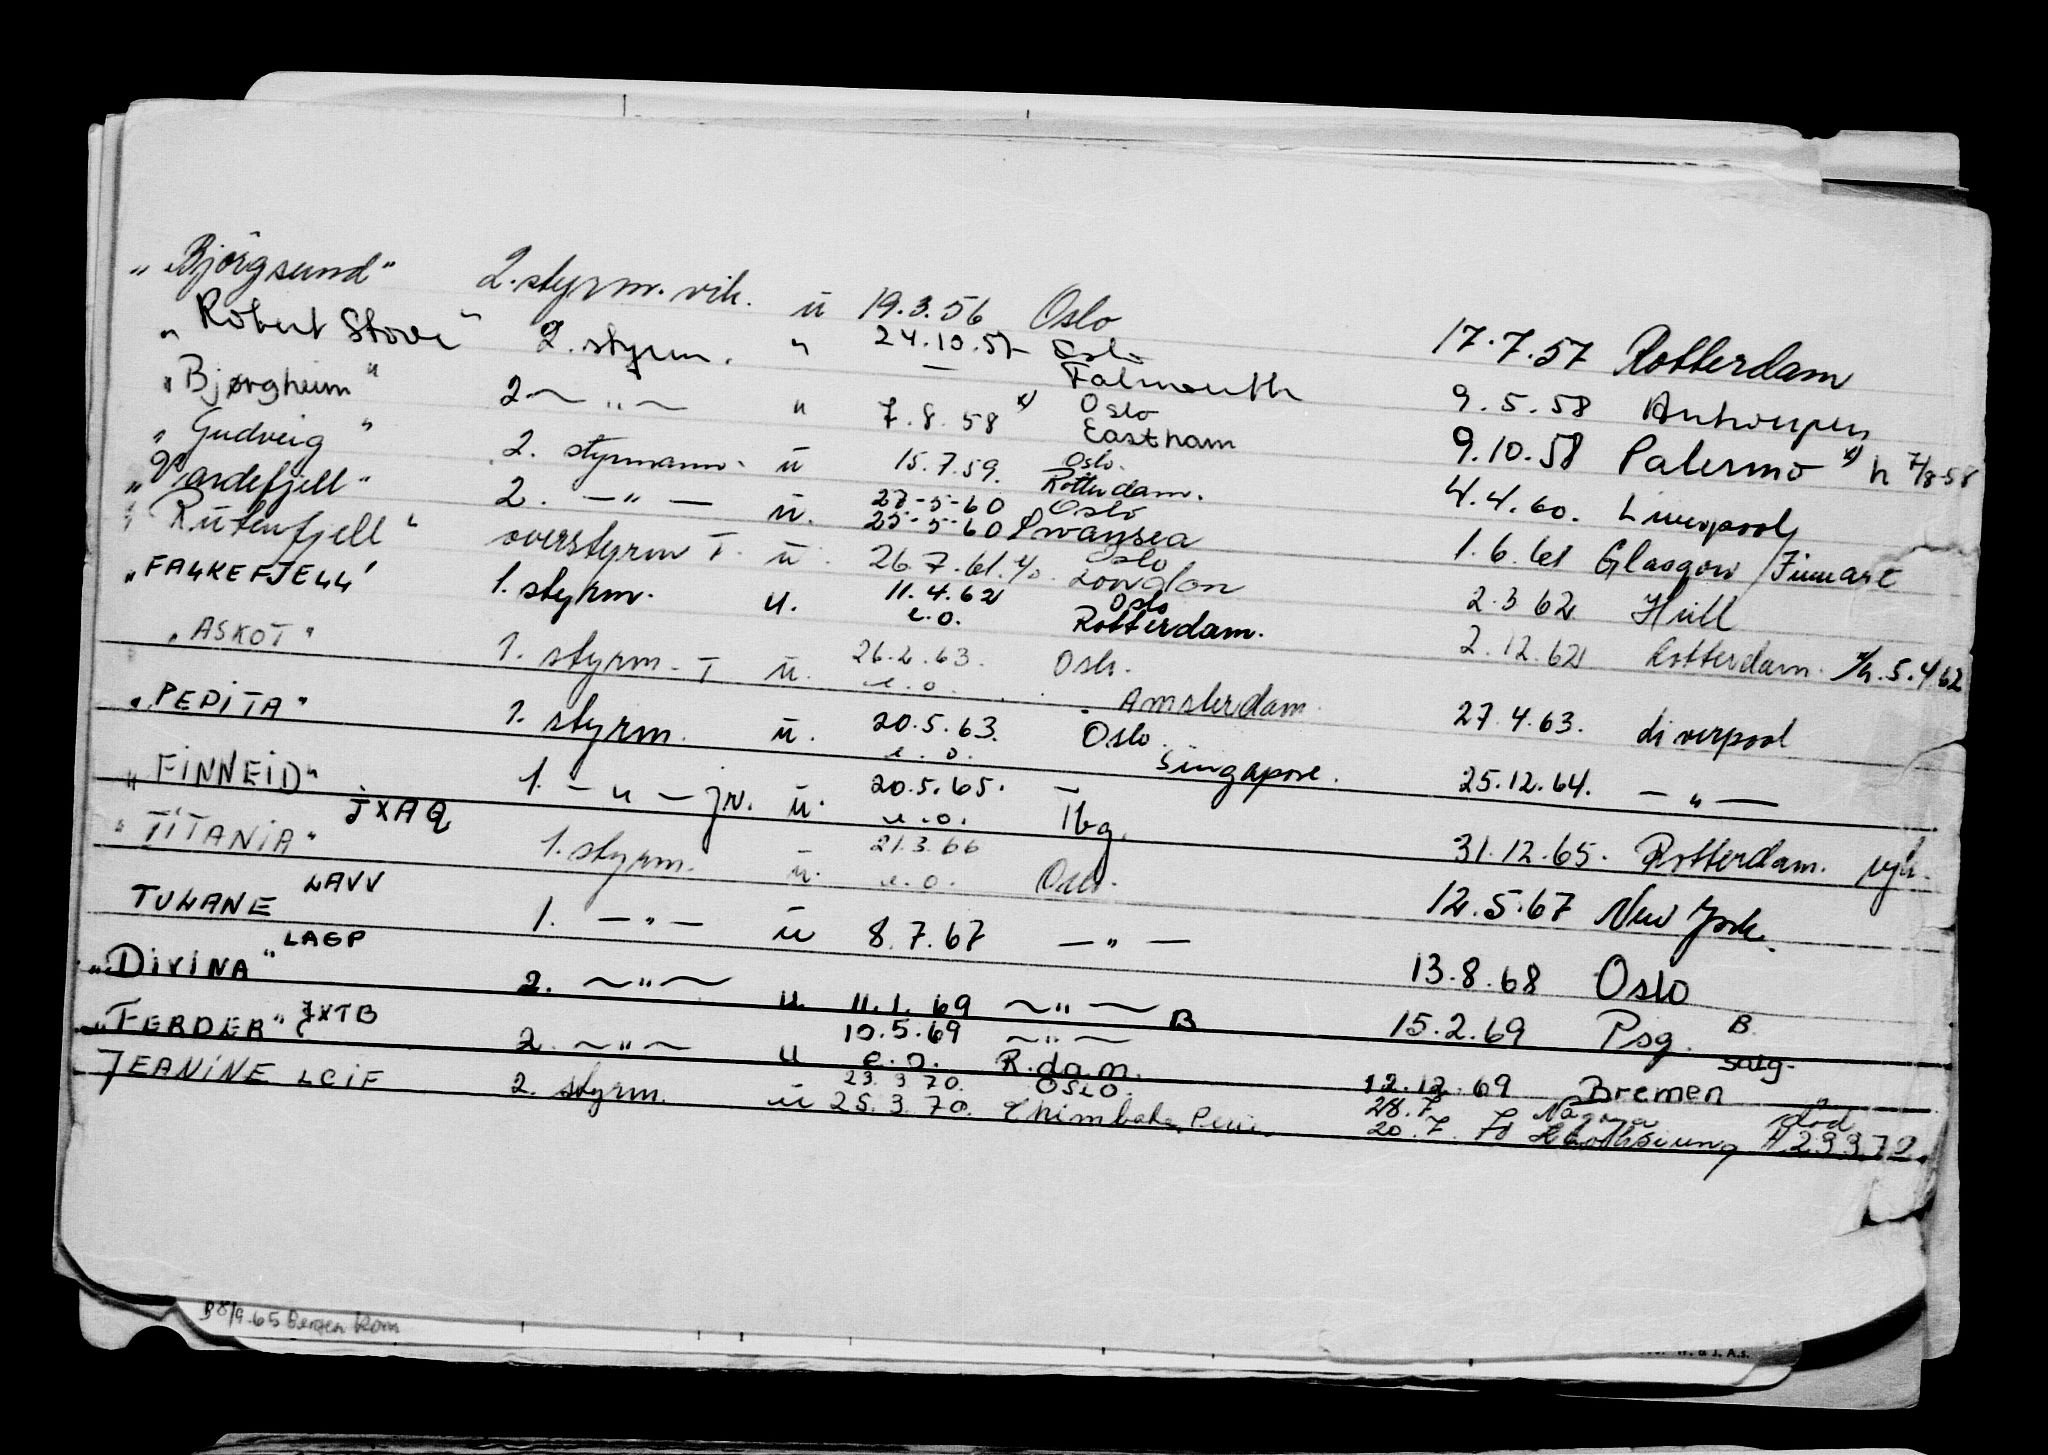 „Bjørgsund“ 2. styrm. vik. u 19.3.56 Oslo 17.7.57 Rotterdam
„Robert Stove“ 2. styrm. " 24.10.57 Oslo Falmouth 9.5.58 Antwerpen
„Bjørgheim“ 2 — " — " 7.8.58 x) Oslo Eastham 9.10.58 Palermo x) h 7/8-58
„Gudveig“ 2. styrmann. u 15.7.59. Oslo. Rotterdam. 4.4.60. Liverpool
„Vardefjell“ 2. — " — u. 27-5-60 Oslo 25-5-60 Swansea 1.6.61 Glasgow
„Rutenfjell“ overstyrm T. u. 26.7.61. Oslo London 2.3 62 Hull
„FALKEFJELL“ 1. styrm. u. 11.4.62 Oslo e.o. Rotterdam. 2.12.62 Rotterdam. x/h.5.4.62
„ASKOT“ 1. styrm. T u. 26.2.63. Oslo. e.o. Amsterdam. 27.4.63. Liverpool
„PEPITA“ 1. styrm. u. 20.5.63. Oslo. e.o. Singapore. 25.12.64. — " —
„FINNEID“ JXAQ 1. — " — jr. u. 20.5.65. — e.o. Tbg. 31.12.65. Rotterdam.
„TITANIA“ LAVV 1. styrm. u. 21.3.66 e.o. Oslo. 12.5.67 New York.
TULANE LAGP 1. — " — u 8.7.67 — " — 13.8.68 Oslo
„DIVINA“ 2. — " — u. 11.1.69 — " — B 15.2.69 Psg. B.
„FERDER“ JXTB 2. — " — u 10.5.69 — " — e.o. R.dam. 12.12.69 Bremen salg.
JEANINE LCIF 2. styrm. u 23.3.70. OSLO. 25.3.70. Chimbote, Peru. 28.7 Nagoya 20.7.70 død
B 8/9-65 Bergen Kom
W. & J. A.s.